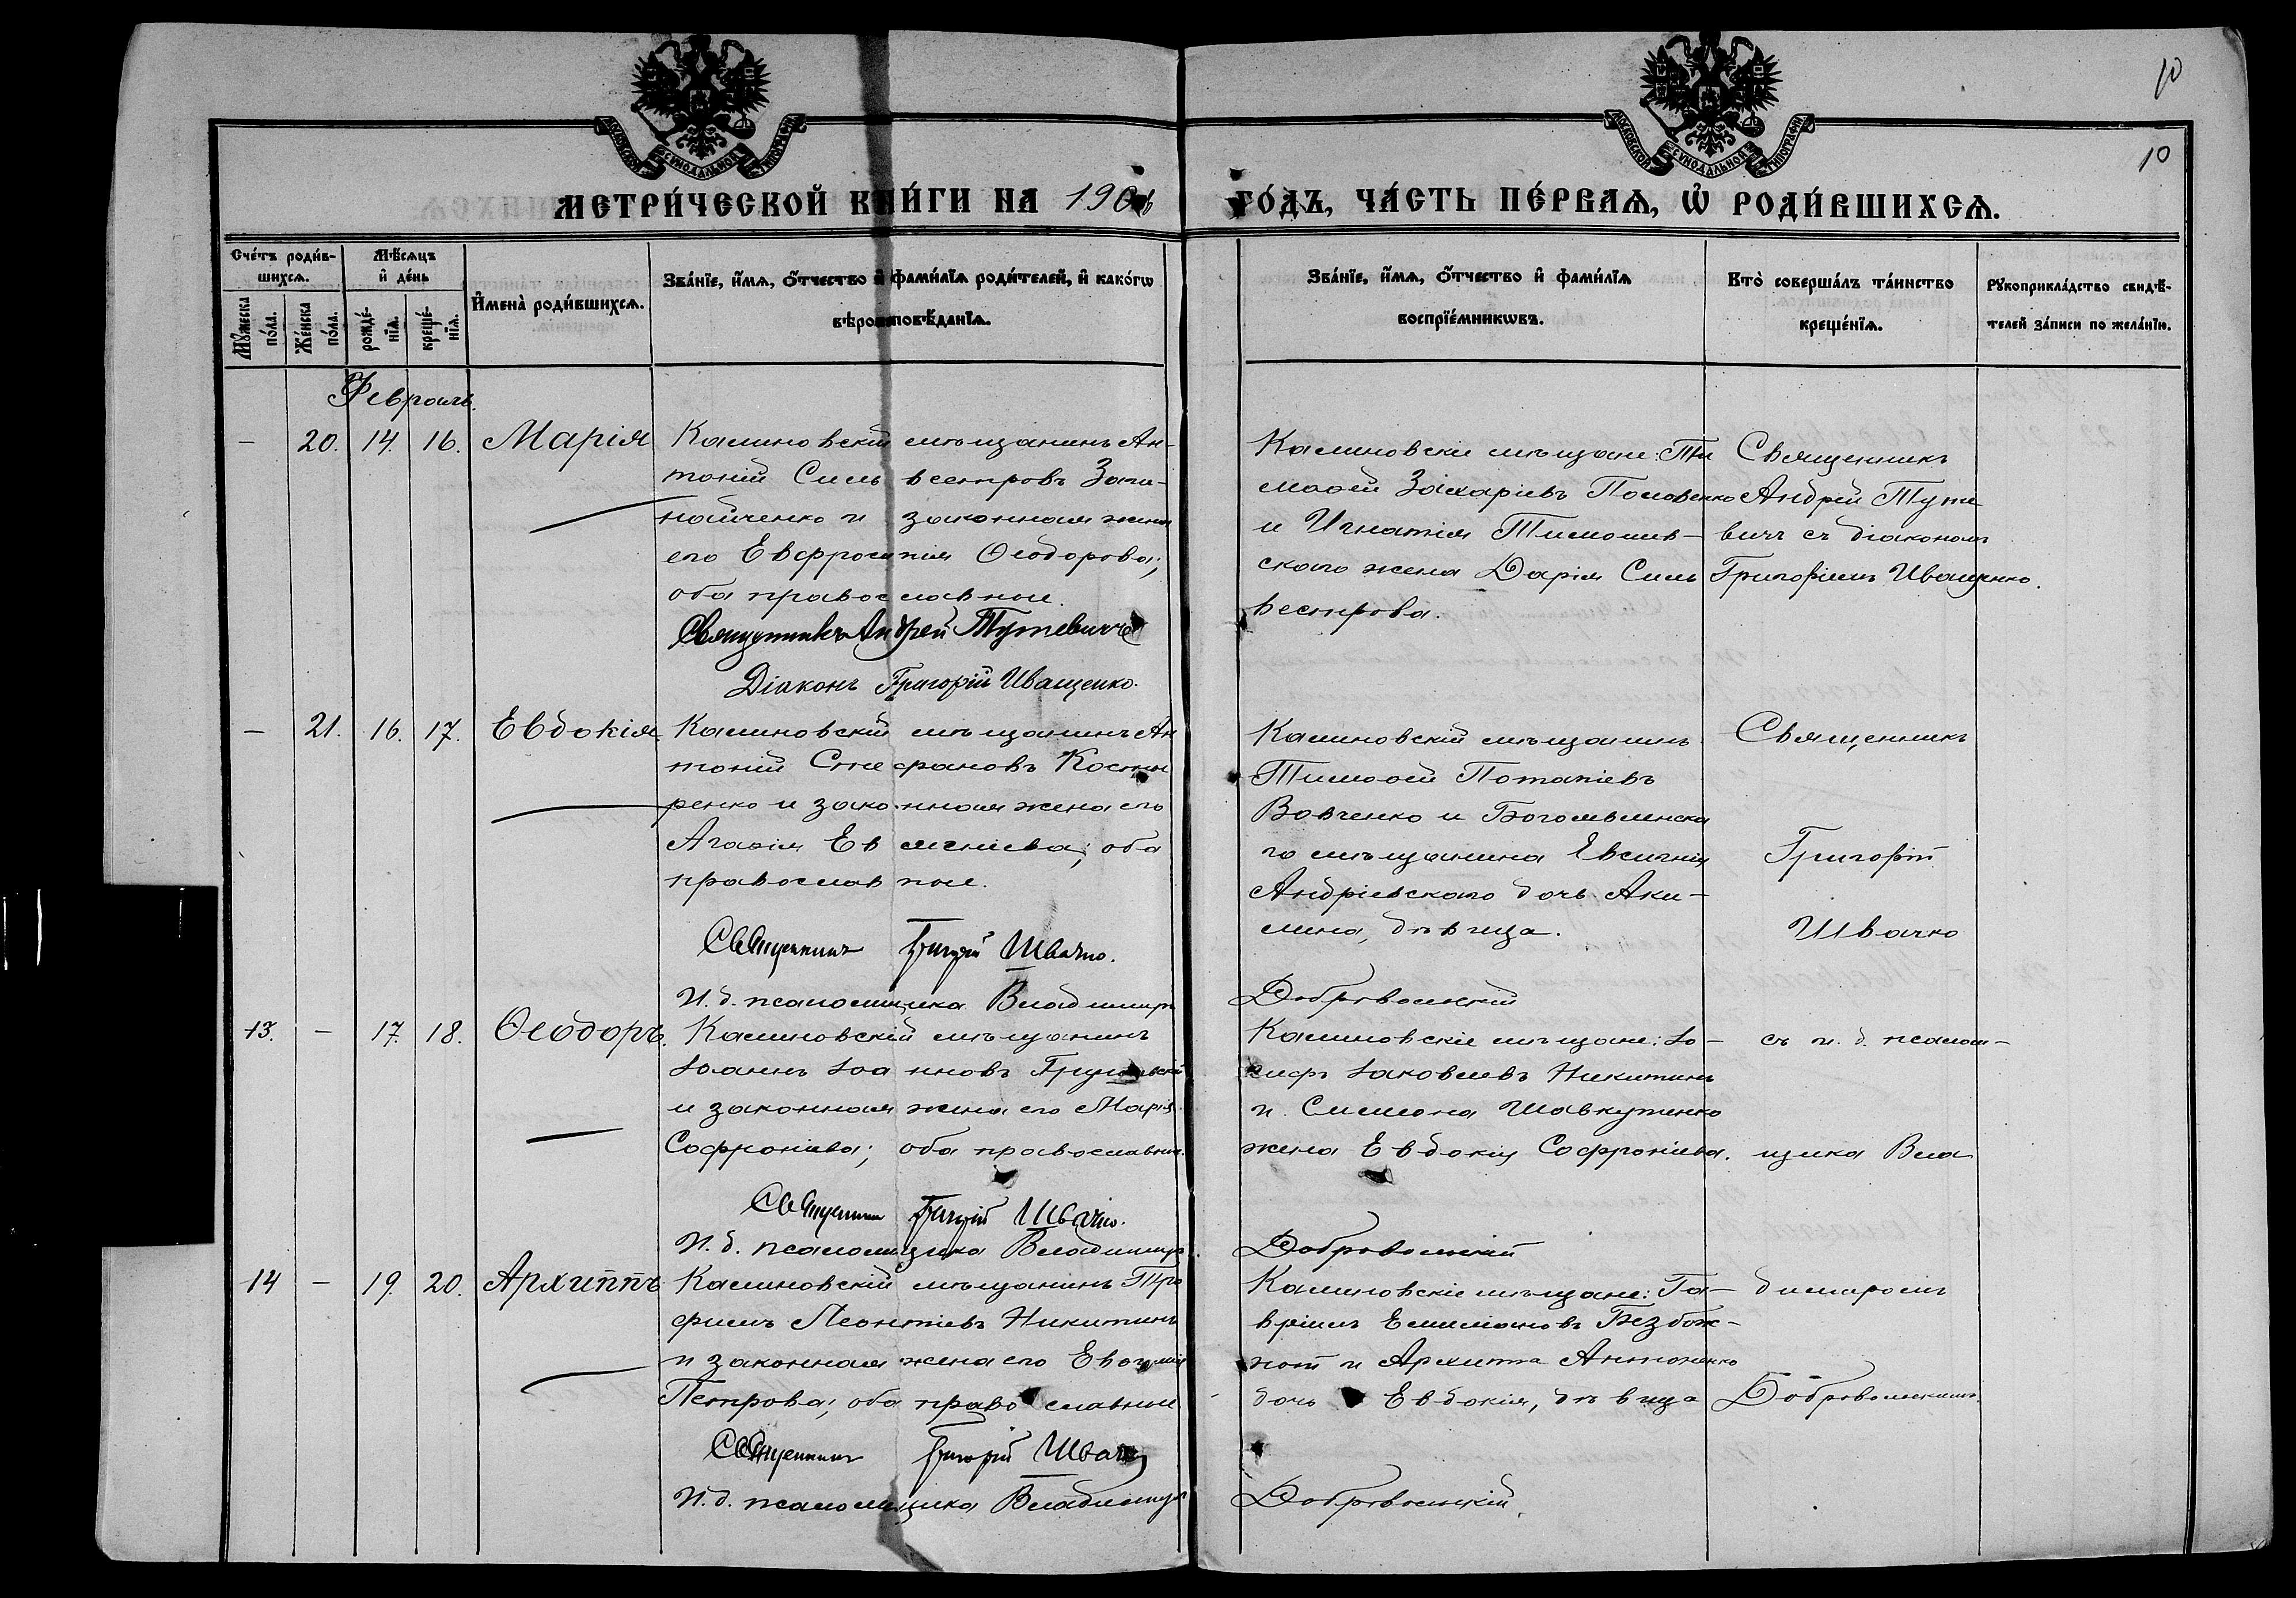 10
10
МОСКОВСКОЙ СУНОДАЛЬНОЙ ТИПОГРАФІИ
МОСКОВСКОЙ СУНОДАЛЬНОЙ ТИПОГРАФІИ
МЕТРИ́ЧЕСКОЙ КНИ́ГИ НА 190
ГО́ДЪ, ЧА́СТЬ ПЕ́РВАѦ, Ѡ҆ РОДИ́ВШИХСѦ.
Сче́тъ роди́в-
шихсѧ.
Мꙋ́жеска по́ла.
Же́нска по́ла.
Мѣ́сѧцъ
и҆ де́нь
рожде́-
нїѧ.
креще́-
нїѧ.
И҆мена̀ роди́вшихсѧ.
Зва́нїе, и҆́мѧ, ѻ҆́тчество и҆ фами́лїѧ роди́телей, и҆ како́гѡ
вѣроисповѣ́данїѧ.
Зва́нїе, и҆́мѧ, ѻ҆́тчество и҆ фами́лїѧ
воспрїе́мникѡвъ.
Кто̀ соверша́лъ та́инство
креще́нїѧ.
Рꙋкоприкла́дство свидѣ́-
телей за́писи по жела́нїю.
Февраль.
— 20. 14. 16. Марія
Калиновскій мѣщанинъ Ан-
тоній Сильвестровъ
и законная жена
его Евфросинія Ѳеодорова;
оба православные.
Священникъ Андрей Тутевичъ
Діаконъ Григорій Иващенко.
Калиновскіе мѣщане: Ти
моѳей Захаріевъ Половенко
и Игнатія Тимошев-
скаго жена Дарія Силь
вестрова.
Священникъ
Андрей Туте
вичъ съ діакономъ
Григоріемъ Иващенко.
— 21. 16. 17. Евдокія.
Калиновскій мѣщанинъ Ан
тоній Стефановъ Косты
ренко и законная жена его
Агаѳія Евменіева; оба
православные.
Священникъ Григорій Швачко.
И. д. псаломщика Владиміръ Добровольскій
Калиновскій мѣщанинъ
Тимоѳей Потапіевъ
Вовченко и
го мѣщанина Евсигнія
Андріевскаго дочь Аки-
лина, дѣвица.
Священникъ
Григорій
Швачко
13. — 17. 18. Ѳеодоръ.
Калиновскій мѣщанинъ
Іоаннъ Іоанновъ
и законная жена его Марія
Софроніева; оба православные.
Священникъ Григорій Швачко.
И. д. псаломщика Владиміръ Добровольскій
Калиновскіе мѣщане: Іо-
сифъ Іаковлевъ Никитинъ
и Симеона Шавкутенко
жена Евдокія Софроніева.
съ и. д. псалом-
щика Вла
14 — 19. 20. Архиппъ
Калиновскій мѣщанинъ Тро
фимъ Леонтіевъ Никитинъ
и законная жена его Евфимія
Петрова; оба православные
Священникъ Григорій Швачко
И. д. псаломщика Владиміръ Добровольскій.
Калиновскіе мѣщане: Га-
вріилъ Емиліановъ Безбож-
ной и Архиппа Антоненко
дочь Евдокія, дѣвица
диміромъ
Добровольскимъ.